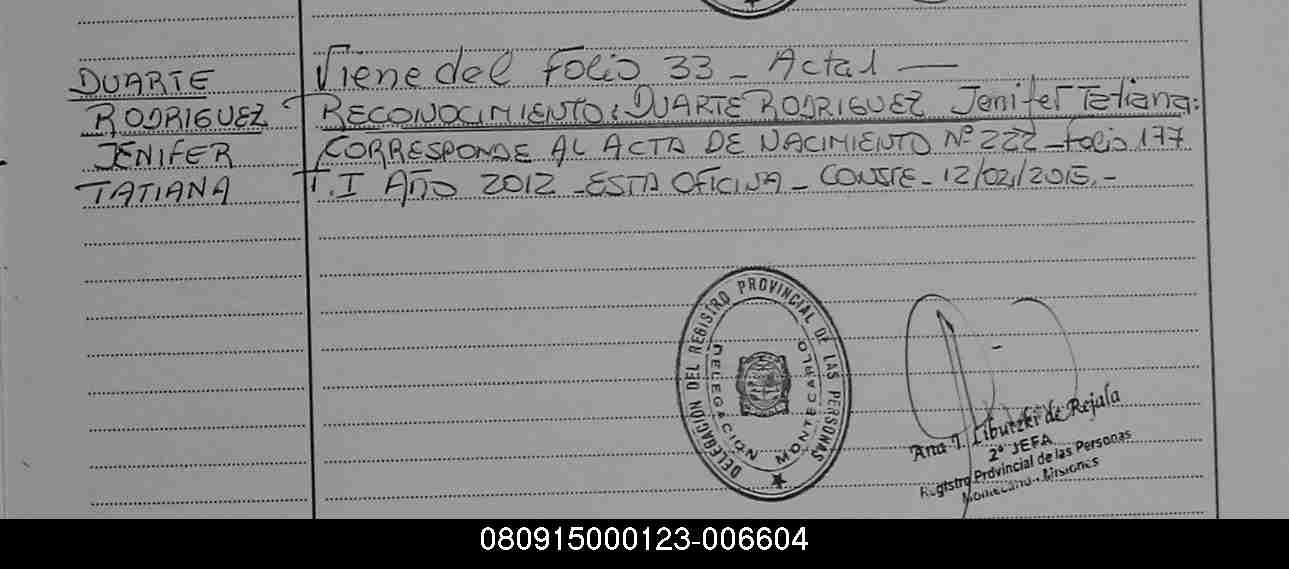 DUARTE
RODRIGUEZ
JENIFER
TATIANA
Viene del Folio 33 - Acta 1 —
RECONOCIMIENTO: DUARTE RODRIGUEZ Jenifer Tatiana:
CORRESPONDE AL ACTA DE NACIMIENTO Nº 222 - Folio 177
T.I AÑO 2012 - ESTA OFICINA - CONSTE - 12/02/2015.-
DELEGACION DEL REGISTRO PROVINCIAL DE LAS PERSONAS
DELEGACION MONTECARLO
Ana T. Libutzki de Rejala
2º JEFA
Registro Provincial de las Personas
Montecarlo - Misiones
080915000123-006604